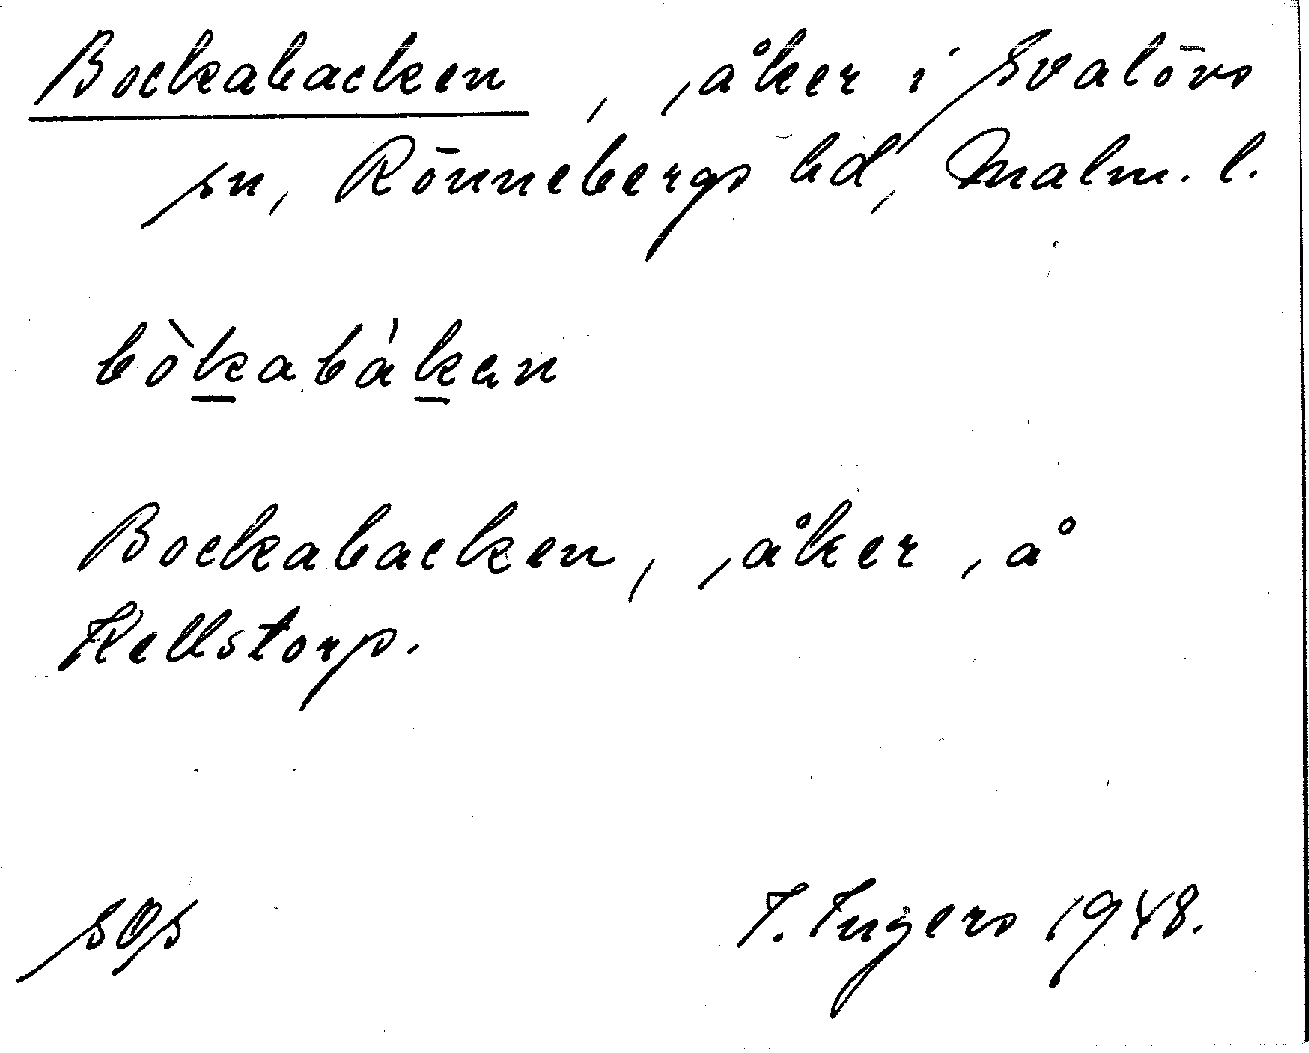 Bockabacken, åker i Svalövs
sn, Rönnebergs hd, Malm. l.
bòkabákan
Bockabacken, åker, å
Källstorp.
I. Ingers 1948.